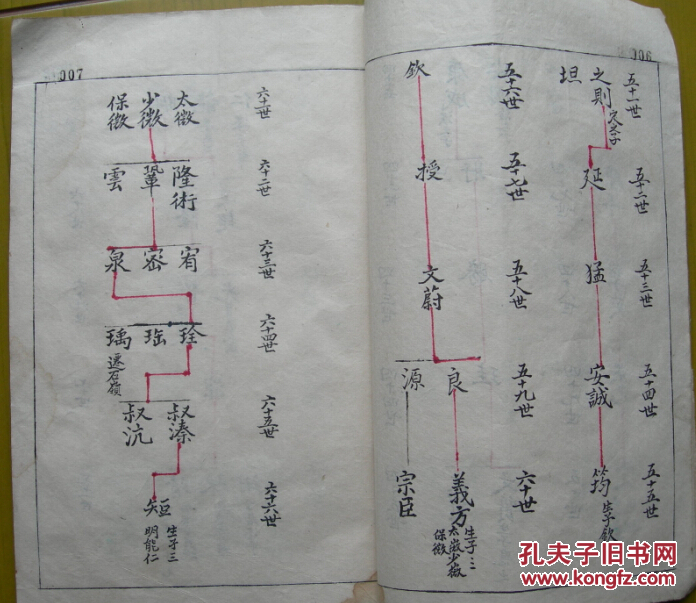 006
五十一世
之則
次子
坦
五十二世
延
五十三世
猛
五十四世
安誠
五十五世
筠
生子欽
五十六世
欽
五十七世
授
五十八世
文蔚
五十九世
良
源
六十世
義方
生子三
太微少微
保微
宗臣
007
六十一世
太微
少微
保微
六十二世
隆術
鞏
雲
六十三世
宥
密
泉
六十四世
瑀
遷石嶺
六十五世
叔溱
叔沆
六十六世
生子三
明能仁
孔夫子旧书网
www.kongfz.com